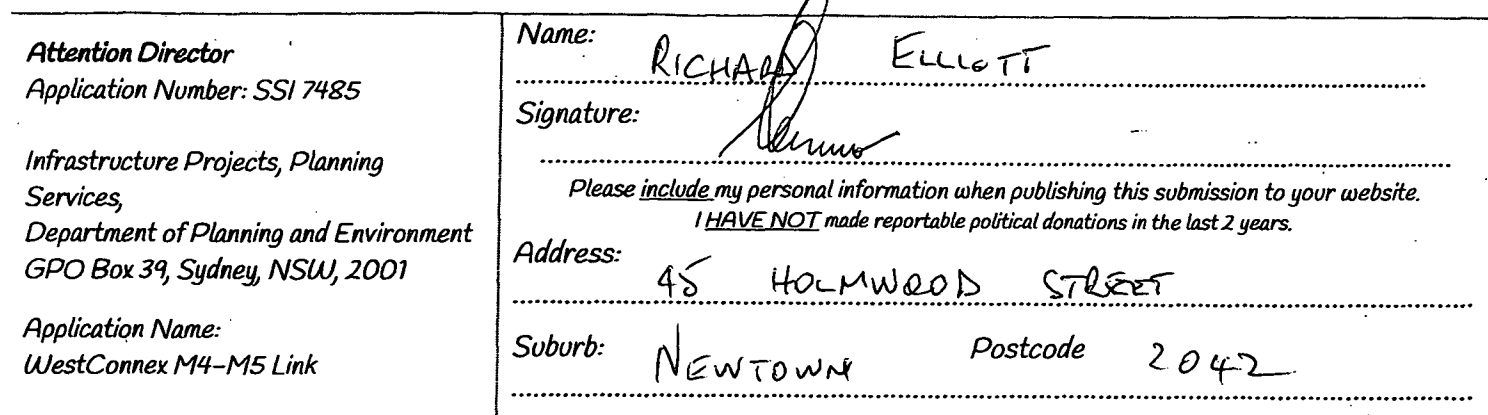 Attention Director
Application Number: SSI 7485
Infrastructure Projects, Planning
Services,
Department of Planning and Environment
GPO Box 39, Sydney, NSW, 2001
Application Name:
WestConnex M4-M5 Link
Name: RICHARD ELLIOTT
Signature:
Please include my personal information when publishing this submission to your website.
I HAVE NOT made reportable political donations in the last 2 years.
Address: 45 HOLMWOOD STREET
Suburb: NEWTOWN Postcode 2042